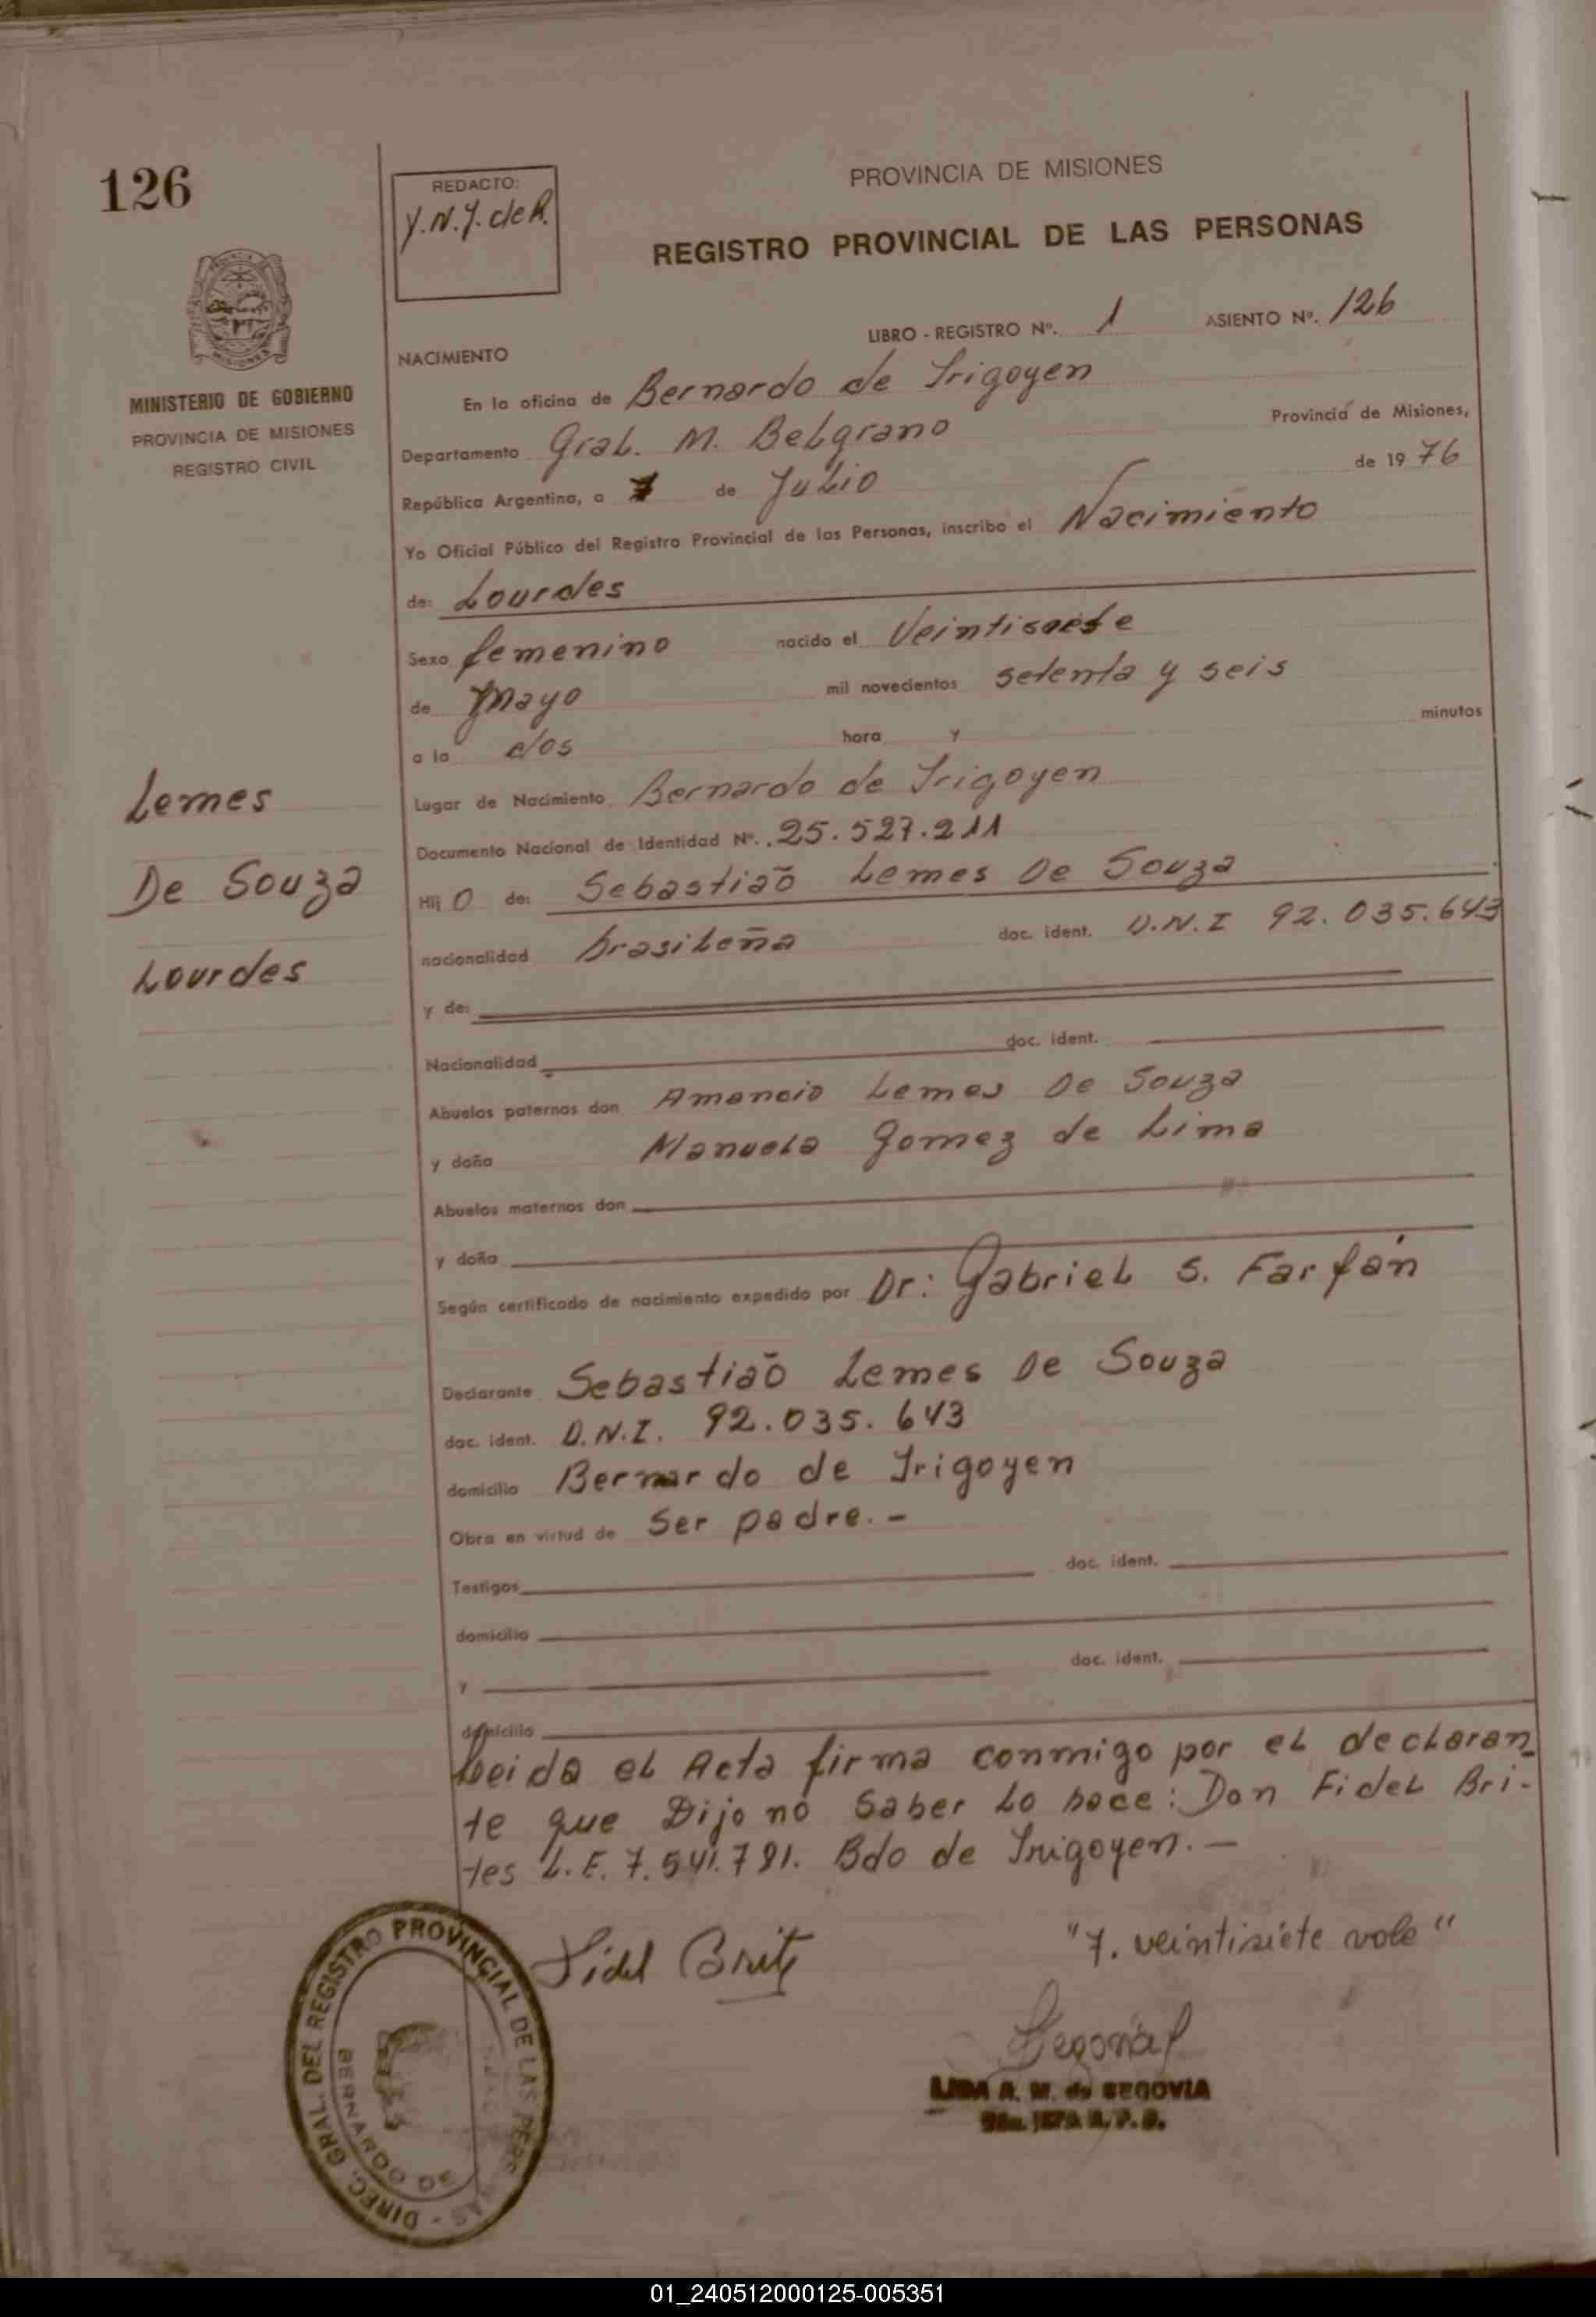 126
REDACTO:
Y.N.J. de R.
PROVINCIA DE MISIONES
REGISTRO PROVINCIAL DE LAS PERSONAS
MINISTERIO DE GOBIERNO
PROVINCIA DE MISIONES
REGISTRO CIVIL
LIBRO - REGISTRO Nº. 1 ASIENTO Nº. 126
NACIMIENTO
En la oficina de Bernardo de Irigoyen
Departamento Gral. M. Belgrano Provincia de Misiones,
República Argentina, a 7 de Julio de 1976
Yo Oficial Público del Registro Provincial de las Personas, inscribo el Nacimiento
de: Lourdes
Sexo femenino nacido el Veintisiete
de Mayo mil novecientos setenta y seis
a la dos hora y minutos
Lugar de Nacimiento Bernardo de Irigoyen
Documento Nacional de Identidad Nº. 25.527.211
Lemes
De Souza
Lourdes
Hij O de: Sebastiaõ Lemes De Souza
nacionalidad brasileña doc. ident. D.N.I 92.035.643
y de:
Nacionalidad doc. ident.
Abuelos paternos don Amancio Lemes De Souza
y doña Manuela Gomez de Lima
Abuelos maternos don
y doña
Según certificado de nacimiento expedido por Dr: Gabriel S. Farfán
Declarante Sebastiaõ Lemes De Souza
doc. ident. D.N.I. 92.035.643
domicilio Bernardo de Irigoyen
Obra en virtud de Ser padre.-
Testigos doc. ident.
domicilio
y doc. ident.
domicilio
Leida el Acta firma conmigo por el declaran
te que Dijo no Saber Lo hace: Don Fidel Bri-
tes L.E. 7.541.791. Bdo de Irigoyen.-
Fidel Brite
"7. veintisiete vale"
Segovia
LIDA A. M. de SEGOVIA
DIREC. GRAL. DEL REGISTRO PROVINCIAL DE LAS PERSONAS -
BERNARDO DE
01_240512000125-005351